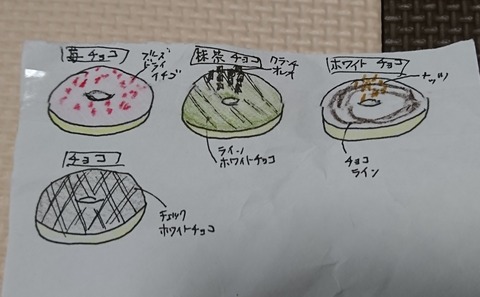 苺チョコ
フリーズ
ドライ
イチゴ
抹茶チョコ
クランチ
オレオ
ライン
ホワイトチョコ
ホワイトチョコ
ナッツ
チョコ
ライン
チョコ
チェック
ホワイトチョコ